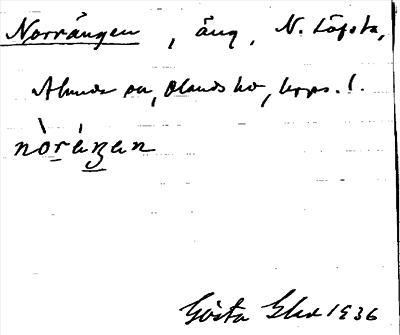 Norrängen, äng, N. Löfsta,
Alunda sn, Olands hd, Upps. l.
nòréŋen
Gösta Glad 1936